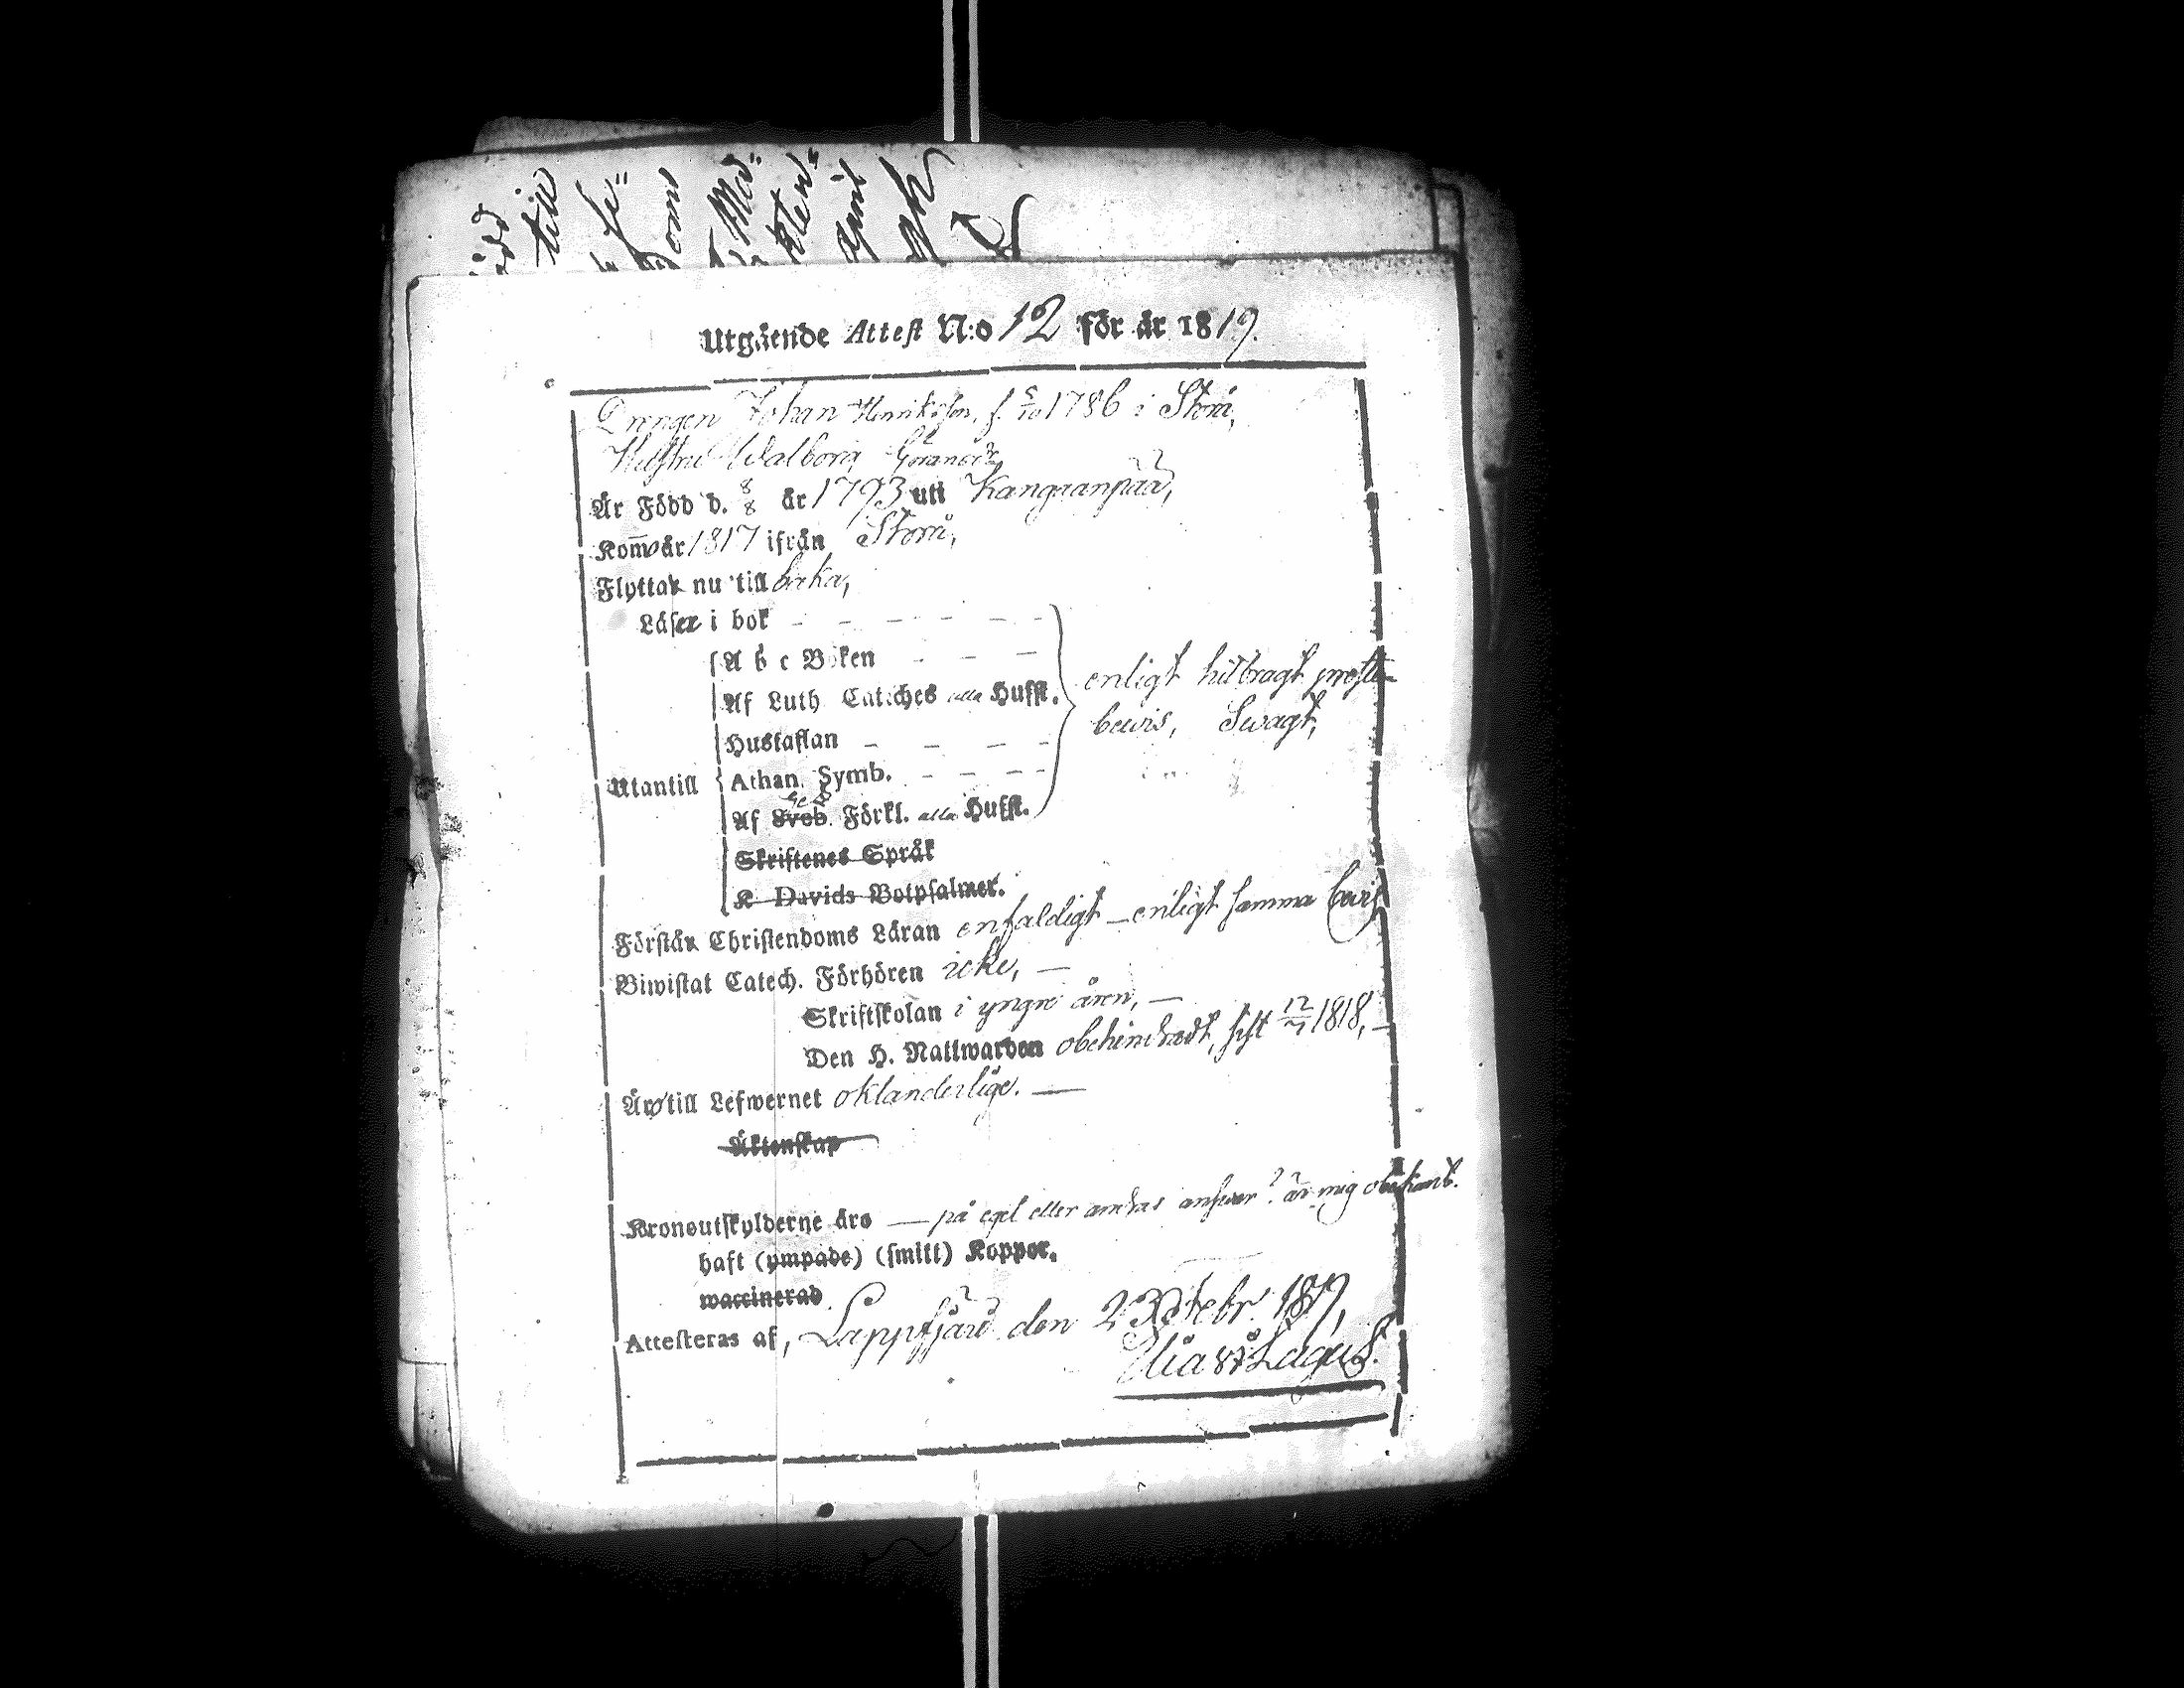 till
Utgående Attest N:o 12 för år 1819.
Drengen Johan Henriksson, f. 5/10 1786 i Storå,
Hustru Walborg Göransdr
Är Född d. 8/8 år 1793 uti Kangasnpää,
Kom̄o år 1817 ifrån Storå,
Flytta nu till baka,
Läsa i bok - - - - - -
A b c Boken - - -
Af Luth Catches alla Hufst.
enligt hitbragt preste-
bewis, Swagt,
Hustaflan - - - -
Utantill Athan. Symb. - - - -
Af Sveb. Förkl. alla Hufst.
Skriftenes Språk
K Davids Botpsalmer.
Förstå Christendoms Läran enfaldigt - enligt samma bewis
Biwistat Catech. Förhören icke, -
Skriftskolan i yngre åren, -
Den H. Nattwarden obehindradt, sist 12/7 1818, -
Äro till Lefwernet oklanderlige. -
Äktenskap
Kronoutskylderne äro - på eget eller andras answar? är mig obekant.
haft (ympade) (smitt) Koppor.
waccinerad
Attesteras af, Lappfjärd den 23 Febr. 1819,
Elias Lagus.